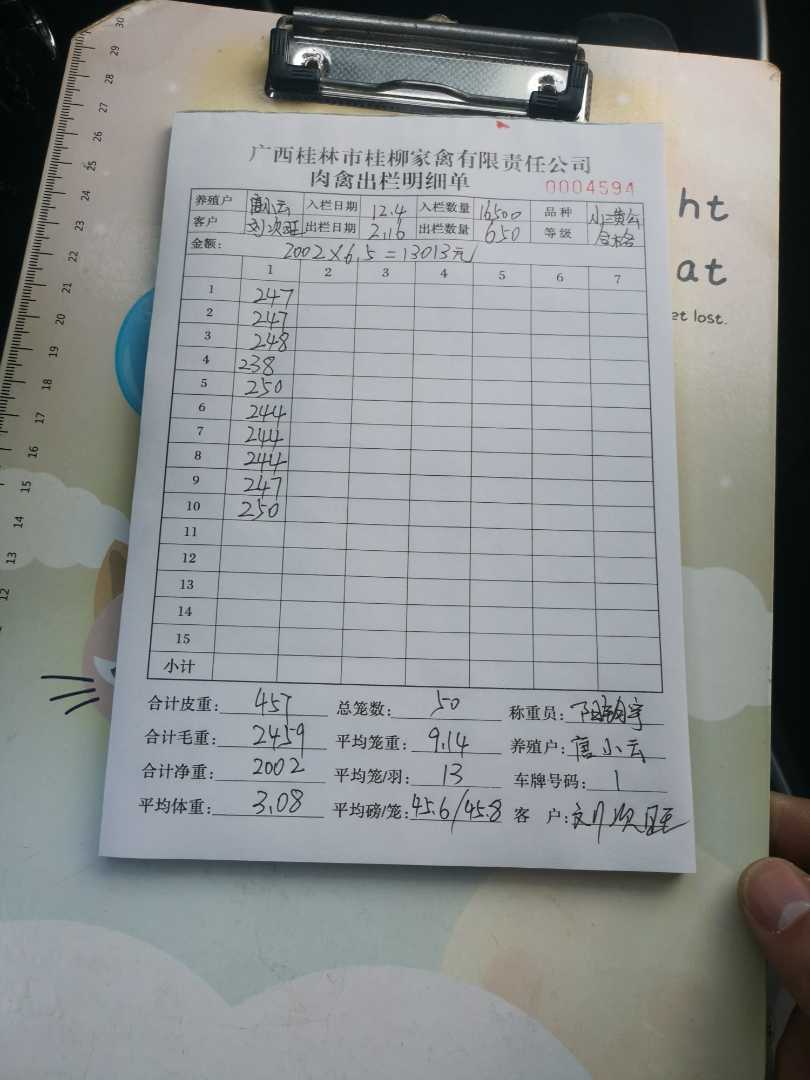 广西桂林市桂柳家禽有限责任公司
肉禽出栏明细单
0004594
养殖户 唐小云 入栏日期 12.4 入栏数量 16500 品种
客户 刘次旺 出栏日期 2.16 出栏数量 650 等级 合格
金额: 2002×6.5=13013元
1 2 3 4 5 6 7
1 247
2 247
3 248
4 238
5 250
6 244
7 244
8 244
9 247
10 250
11
12
13
14
15
小计
合计皮重: 457 总笼数: 50 称重员:
合计毛重: 2459 平均笼重: 9.14 养殖户: 唐小云
合计净重: 2002 平均笼/羽: 13 车牌号码: 1
平均体重: 3.08 平均磅/笼: 45.6/45.8 客 户: 刘次旺
ht
at
et lost.
30
29
28
27
26
25
24
23
22
21
20
19
18
17
16
15
14
13
12